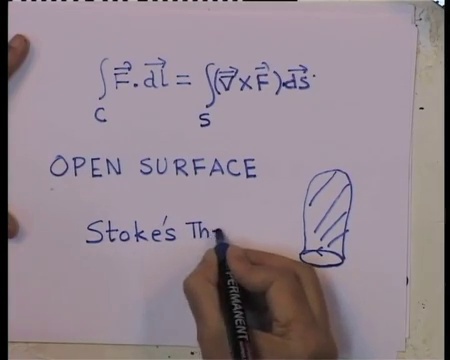 ∫_C F⃗ . dl⃗ = ∫_S (∇⃗ x F⃗) ds⃗
OPEN SURFACE
Stoke's Th
PERMANENT